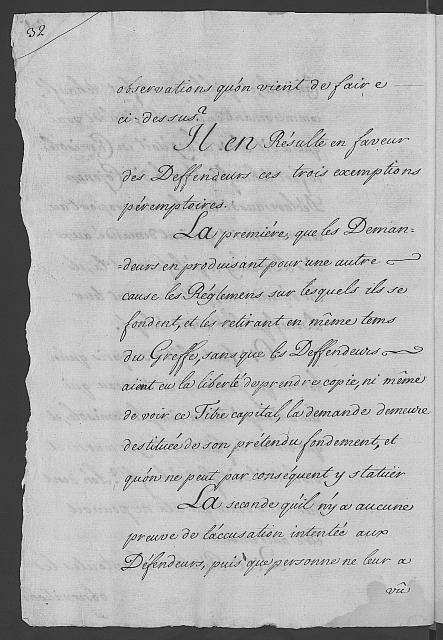 32
observations qu'on vient de faire
ci-dessus?
Il en Résulte en faveur
des Deffendeurs ces trois exemptions
péremptoires.
La premiére, que les Deman-
-deurs en produisant pour une autre
cause les Réglemens sur lesquels ils se
fondent, et les retirant en même tems
du Greffe, sans que les Deffendeurs
aient eu la liberté de prendre copie, ni même
de voir ce Titre capital, la demande demeure
destituée de son prétendu fondement, et
qu'on ne peut par conséquent y statuër
La seconde qu'il n'y a aucune
preuve de l'accusation intentée aux
Défendeurs, puis que personne ne leur a
vû